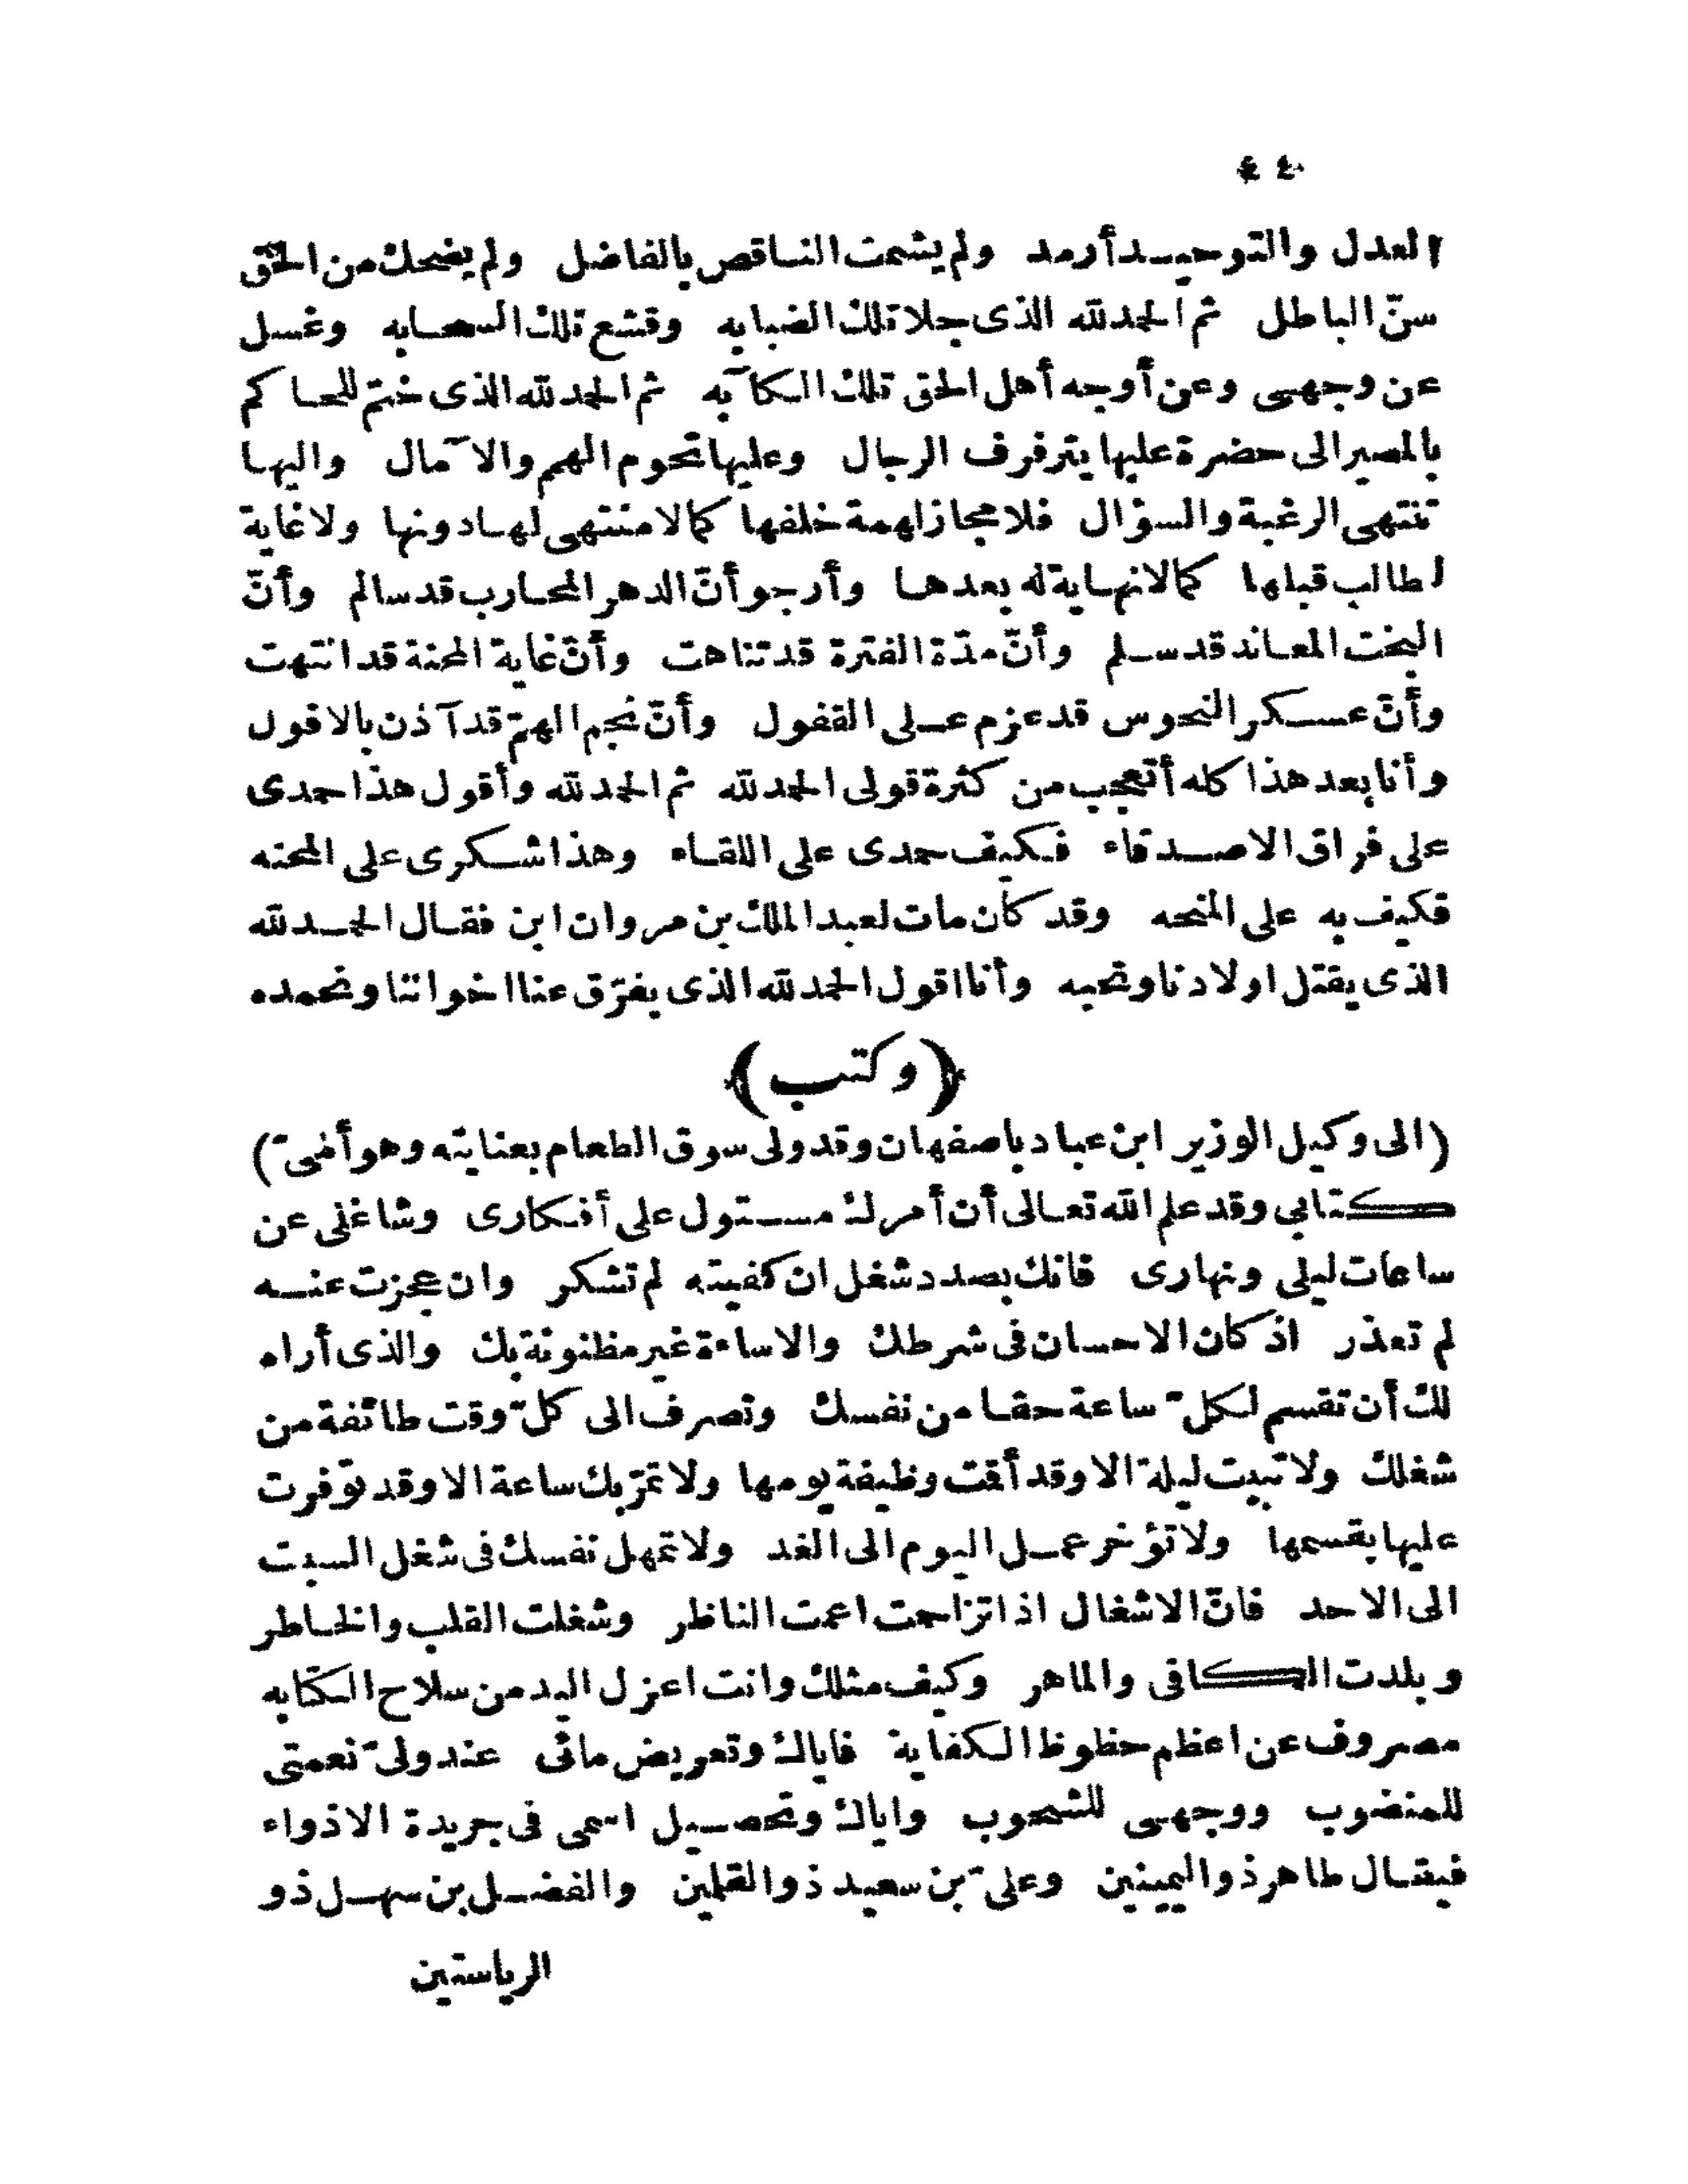 ٤٤
العدل والتوحيد أرمد ولم يشمت الناقص بالفاضل ولم يضحك من الحق
سنّ الباطل ثم الحمد لله الذى جلا تلك الضبابه وقشع تلك السحابه وغسل
عن وجهى وعن أوجه أهل الحق تلك الكآبه ثم الحمد لله الذى ختم للحاكم
بالمسير الى حضرة عليها يترفرف الرجال وعليها تحوم الهمم والآمال واليها
تنتهى الرغبة والسؤال فلا مجاز لهمة خلفها كما لا منتهى لها دونها ولا غاية
لطالب قبلها كما لا نهاية له بعدها وأرجو أنّ الدهر المحارب قد سالم وأنّ
البخت المعاند قد سلم وأنّ مدّة الفترة قد تناهت وأنّ غاية المحنة قد انتهت
وأنّ عسكر النحوس قد عزم على القفول وأنّ نجم الهمّ قد آذن بالافول
وأنا بعد هذا كله أتعجب من كثرة قولى الحمد لله ثم الحمد لله وأقول هذا حمدى
على فراق الاصدقاء فكيف حمدى على اللقاء وهذا شكرى على المحنه
فكيف به على المنحه وقد كان مات لعبد الملك بن مروان ابن فقال الحمد لله
الذى يقتل اولادنا ونحبه وأنا اقول الحمد لله الذى يفرّق عنا اخواننا ونحمده
﴿وكتب﴾
(الى وكيل الوزير ابن عباد باصفهان وقد ولى سوق الطعام بعنايته وهو أمىّ)
كتابي وقد علم الله تعالى أن أمرك مستول على أفكارى وشاغلى عن
ساعات ليلى ونهارى فانك بصدد شغل ان كفيته لم تشكر وان عجزت عنه
لم تعذر اذ كان الاحسان فى شرطك والاساءة غير مظنونة بك والذى أراه
لك أن تقسم لكلّ ساعة حقا من نفسك وتصرف الى كلّ وقت طائفة من
شغلك ولا تبيت ليلة الا وقد أقت وظيفة يومها ولا تمرّ بك ساعة الا وقد توّفرت
عليها بقسمها ولا تؤخر عمل اليوم الى الغد ولا تمهل نفسك فى شغل السبت
الى الاحد فانّ الاشغال اذا تزاحمت اعمت الناظر وشغلت القلب والخاطر
وبلدت الكافى والماهر وكيف مثلك وانت اعزل اليد من سلاح الكتابه
مصروف عن اعظم حظوظ الكفاية فاياك وتعريض مائى عند ولىّ نعمتى
للنضوب ووجهى للشحوب واياك وتحصيل اسمى فى جريدة الاذواء
فيقال طاهر ذو اليمينين وعلىّ بن سعيد ذو القلمين والفضل بن سهل ذو
الرياستين